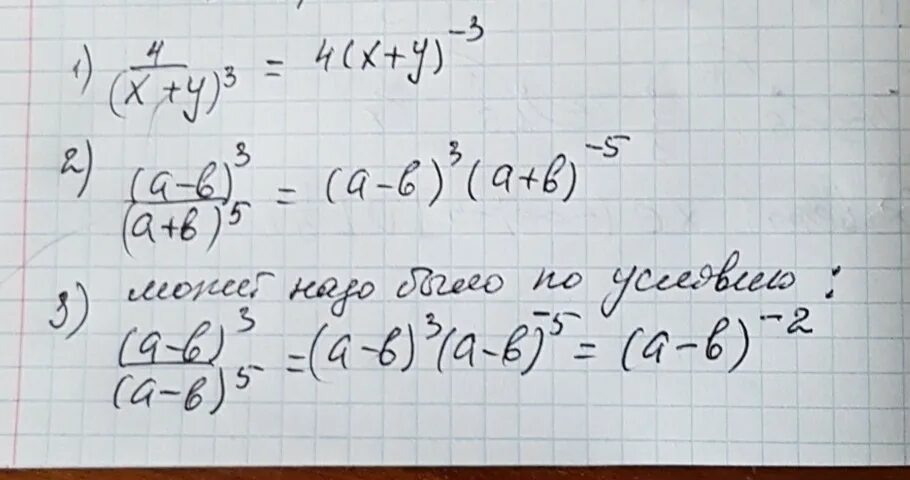 1) 4/(x+y)³ = 4(x+y)⁻³
2) (a-в)³/(a+в)⁵ = (a-в)³(a+в)⁻⁵
3) может надо было по условию:
(a-в)³/(a-в)⁵ = (a-в)³(a-в)⁻⁵ = (a-в)⁻²